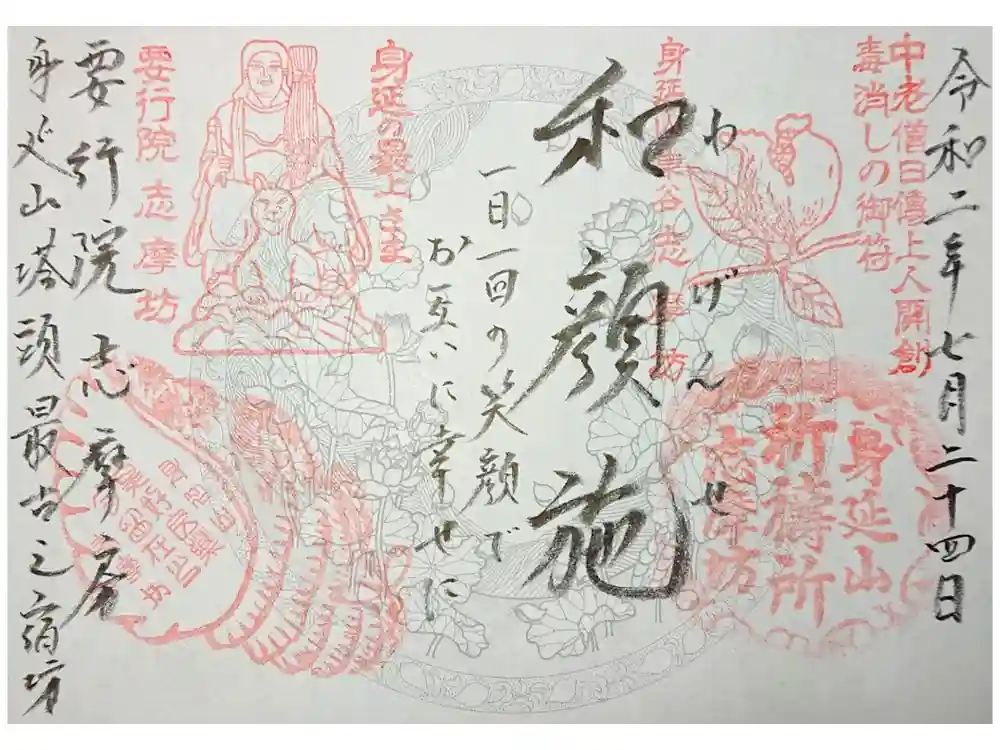 令和二年七月二十四日
中老僧日傳上人開創
毒消しの御符
身延山
祈祷所
志摩坊
わげんせ
和顔施
一日一回の笑顔で
お互いに幸せに
身延の最上さま
要行院志摩坊
要行院 志摩房
身延山塔頭最古之宿坊